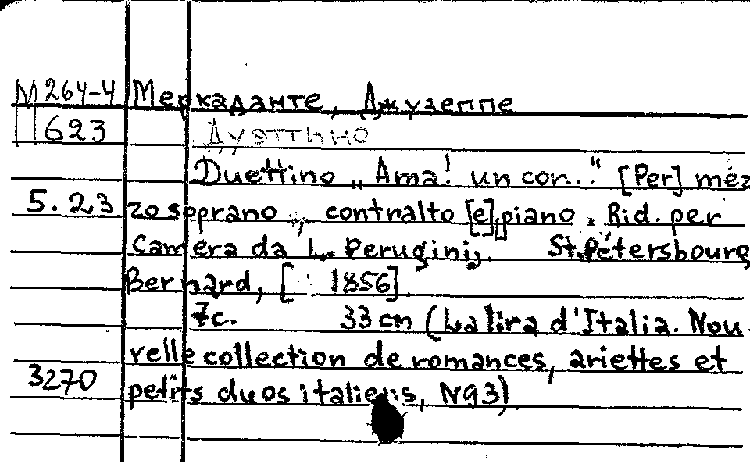 М 264-4 Меркаданте, Джузеппе
П 623 Дуэттино
Duettino „Ama! un cor.." [Per] mez
5.23 zosoprano, contralto [e] piano. Rid. per
Camera da L. Perugini. St. Pétersbourg,
Bernard, [1856].
7c. 33 cm (La lira d'Italia. Nou-
velle collection de romances, ariettes et
3270 petits duos italiens, N93)